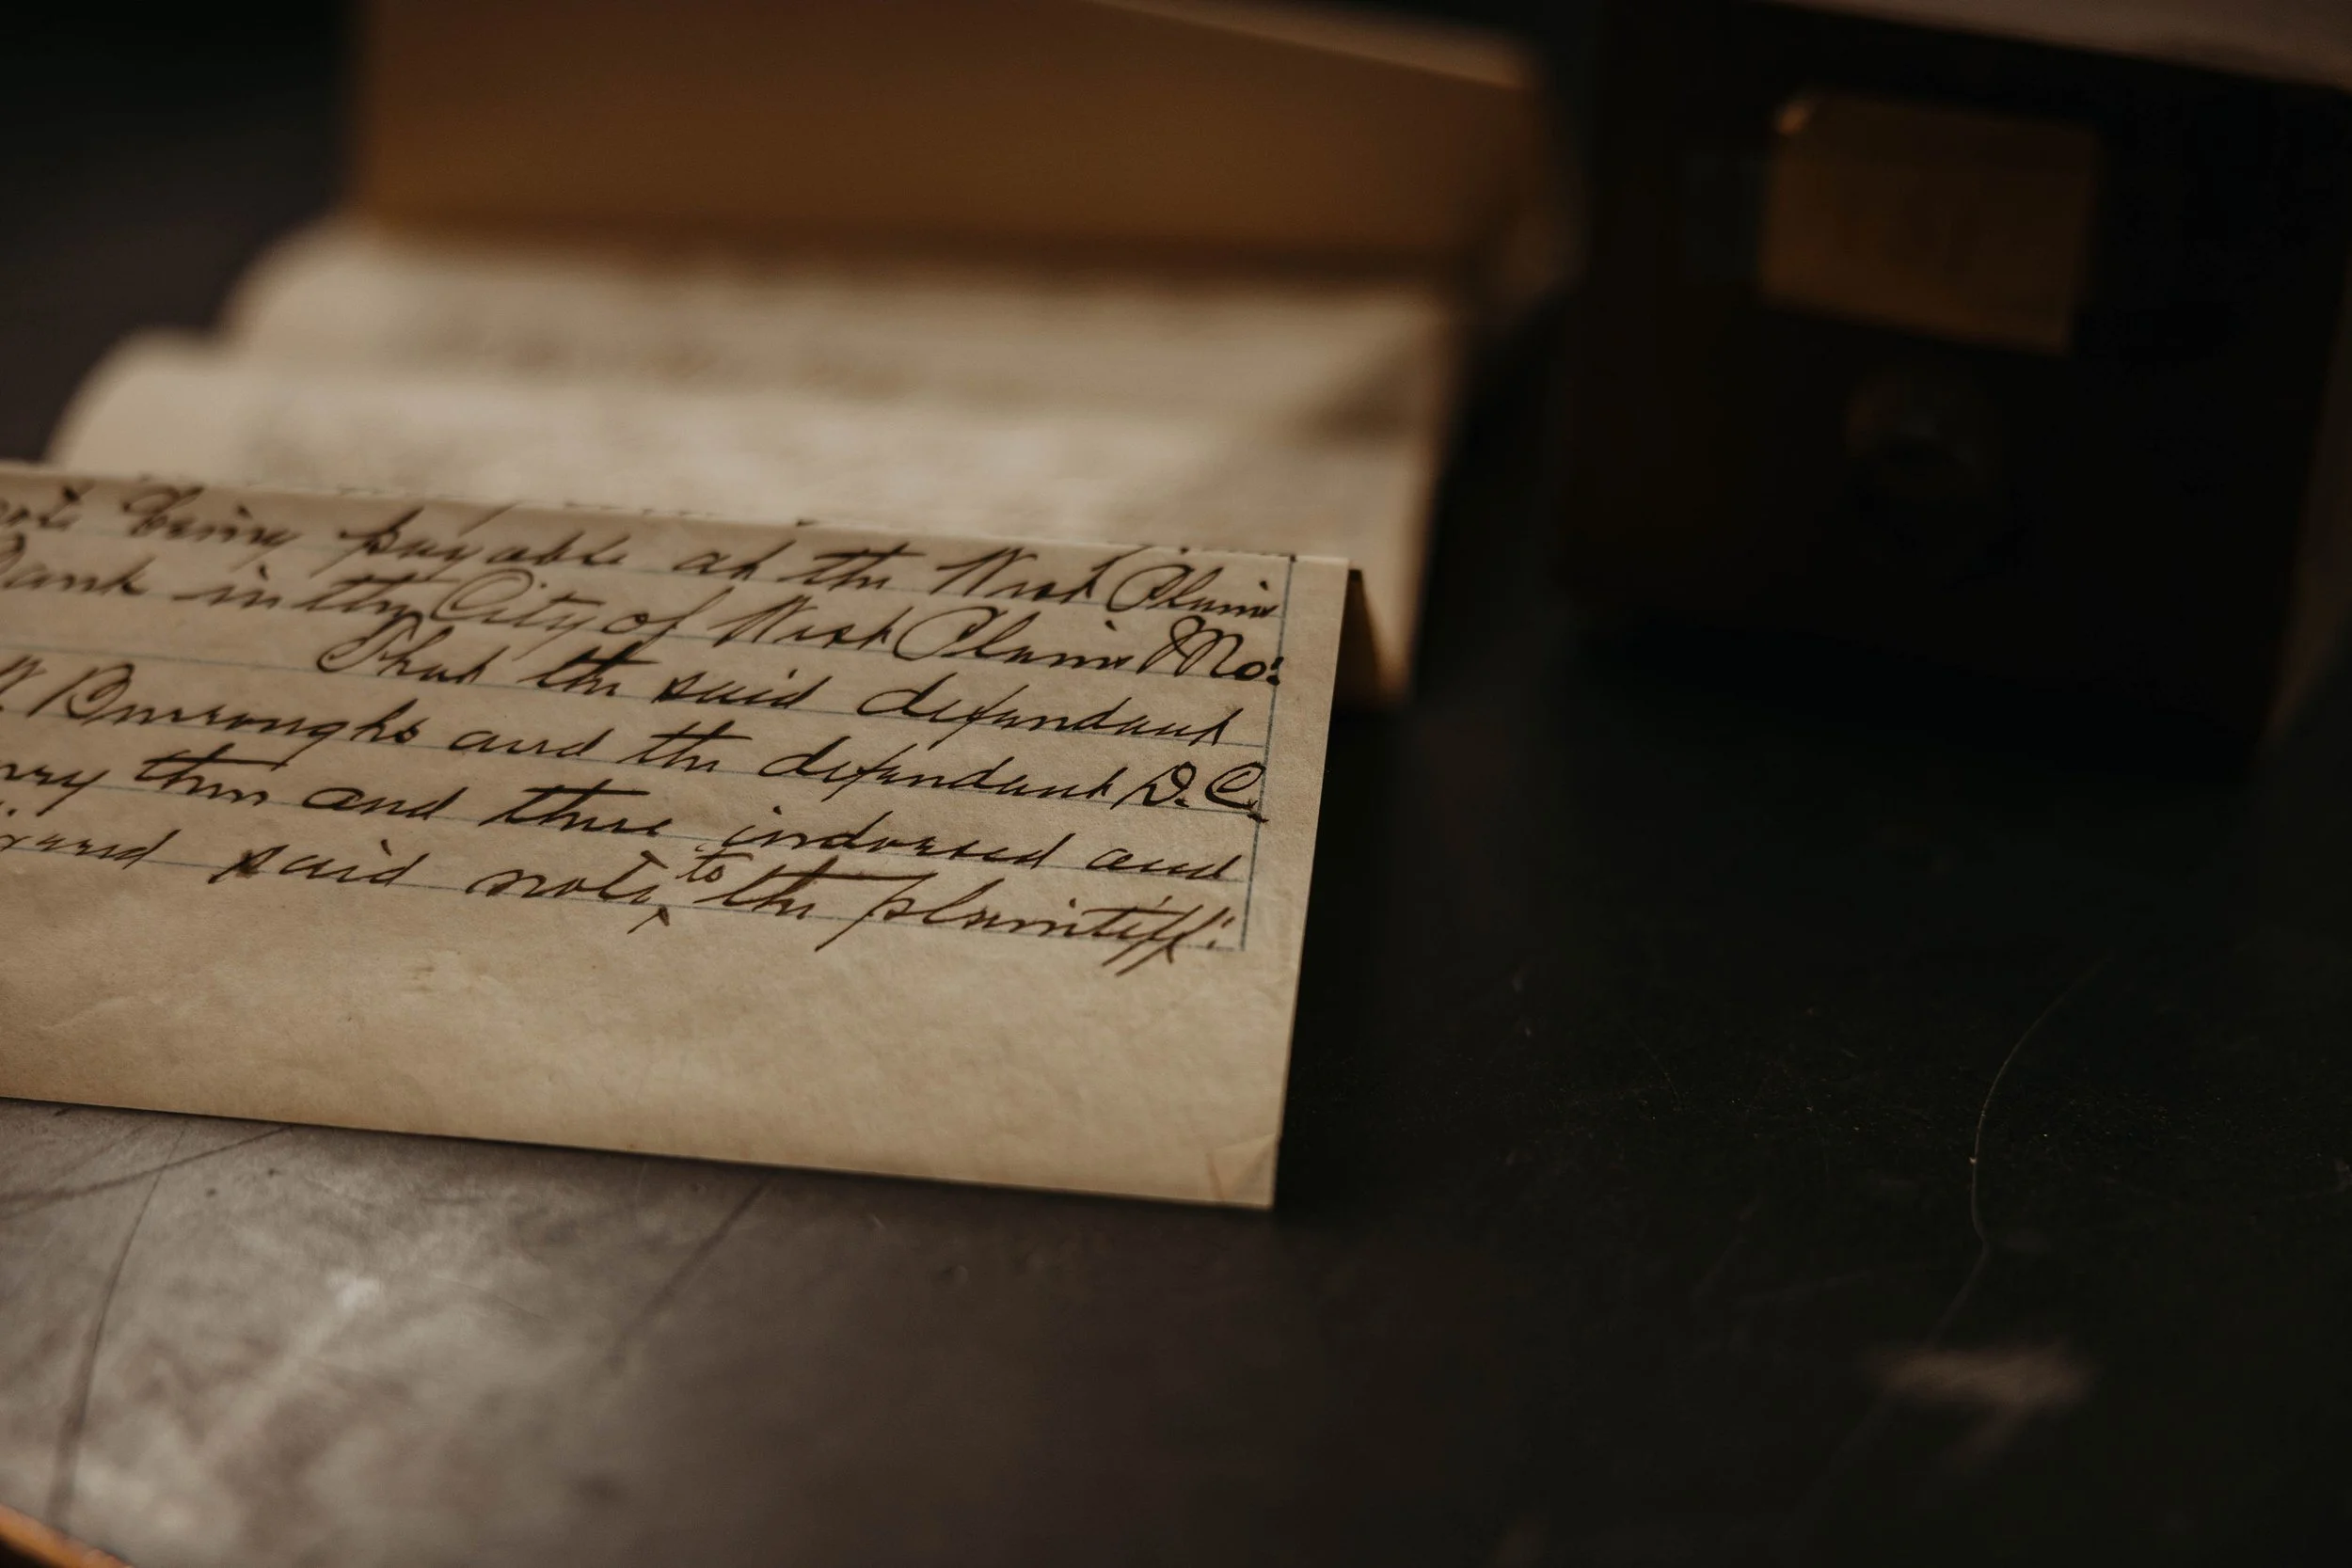 being payable at the West Plains
Bank in the City of West Plains Mo.
That the said defendant
W. Burroughs and the defendant D.C.
then and there indorsed and
said note, to the plaintiff.